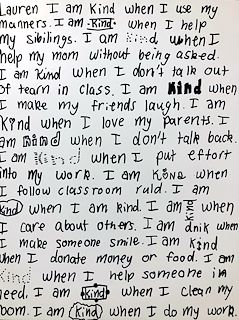 Lauren I am Kind when I use my
manners. I am Kind when I help
my sibilings. I am Kind when I
help my mom without being asked.
I am kind when I don't talk out
of tearn in class. I am Kind when
I make my friends laugh. I am
Kind when I love my parents. I
am Kind when I don't talk back.
I am Kind when I put effort
into my work. I am Kind when
I follow classroom ruld. I am
Kind when I am kind. I am Kind when
I care about others. I am dnik when
I make someone smile. I am Kind
when I donate money or food. I am
Kind when I help someone in
need. I am Kind when I clean my
room. I am Kind when I do my work.